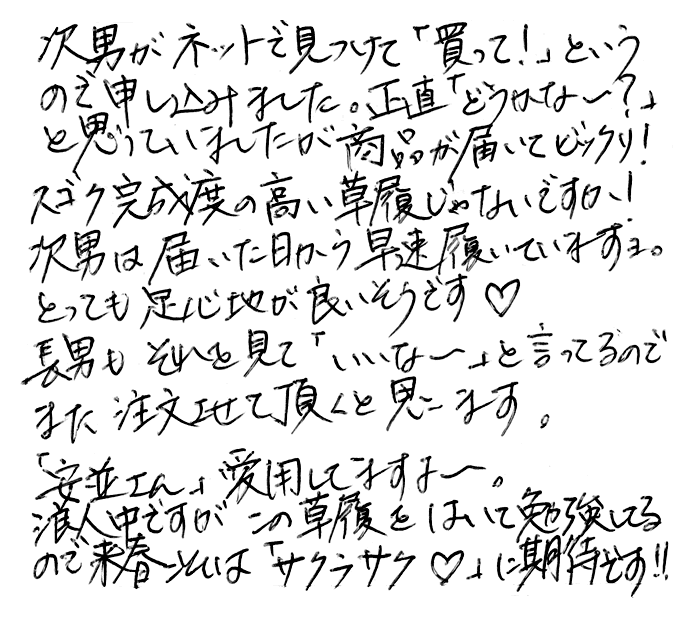 次男がネットで見つけて「買って!」という
ので申し込みました。正直「どうかな〜?」
と思っていましたが商品が届いてビックリ!
スゴク完成度の高い草履じゃないですか!
次男は届いた日から早速履いていますョ。
とっても足心地が良いそうです♡
長男もそれを見て「いいな〜」と言ってるので
また注文させて頂くと思います。
「安並さん」愛用してますよ〜。
浪人中ですがこの草履をはいて勉強してる
ので来春は「サクラサク♡」に期待です!!